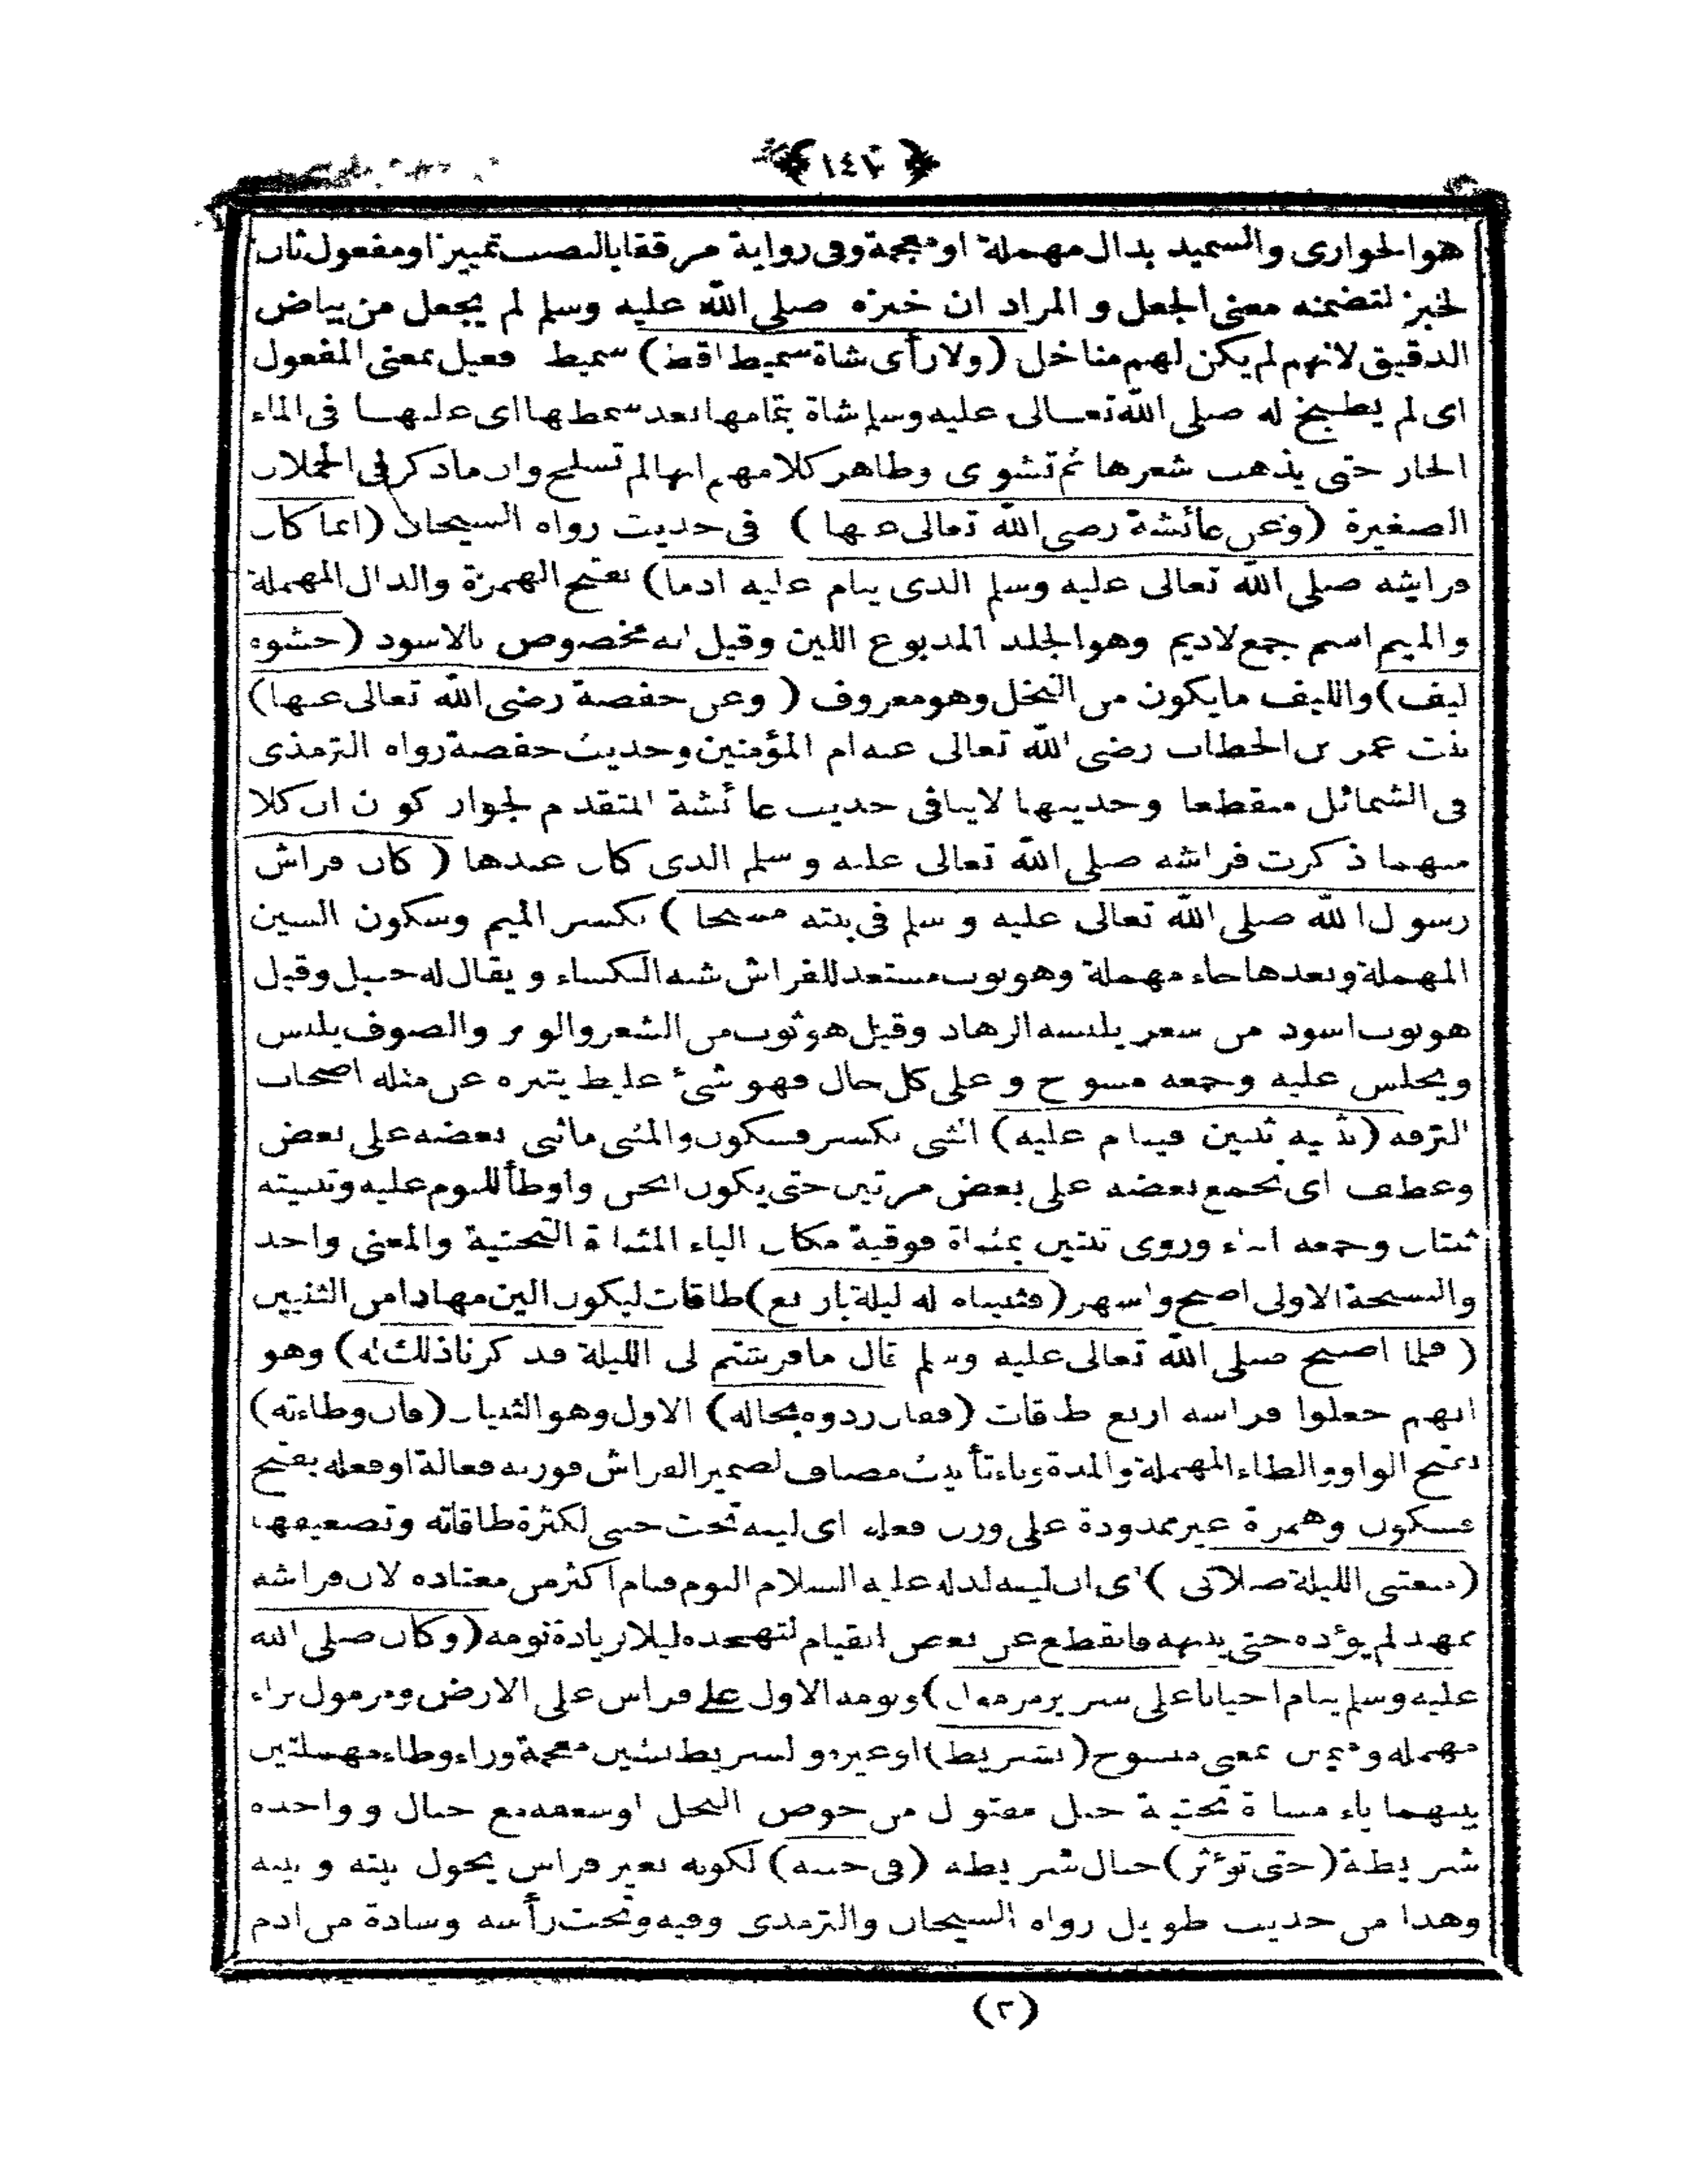 ﴿ ١٤٢ ﴾
هو الحوارى والسميد بدال مهملة او معجمة وفى رواية مرققا بالنصب تمييز او مفعول ثان
لخبز لتضمنه معنى الجعل و المراد ان خبزه صلى الله عليه وسلم لم يجعل من بياض
الدقيق لانهم لم يكن لهم مناخل ( ولا رأى شاة سميطا قط ) سميط فعيل بمعنى المفعول
اى لم يطبخ له صلى الله تعالى عليه وسلم شاة بتمامها بعد سمطها اى غليها فى الماء
الحار حتى يذهب شعرها ثم تشوى وظاهر كلامهم انها لم تسلخ وان ماذكر فى الحملان
الصغيرة ( وعن عائشة رضى الله تعالى عنها ) فى حديث رواه الشيخان ( انما كان
فراشه صلى الله تعالى عليه وسلم الذى ينام عليه ادما ) بفتح الهمزة والدال المهملة
والميم اسم جمع لاديم وهو الجلد المدبوغ اللين وقيل انه مخصوص بالاسود ( حشوه
ليف ) والليف مايكون من النخل وهو معروف ( وعن حفصة رضى الله تعالى عنها )
بنت عمر بن الخطاب رضى الله تعالى عنه ام المؤمنين وحديث حفصة رواه الترمذى
فى الشمائل منقطعا وحديثها لاينافى حديث عائشة المتقدم لجواز كون ان كلا
منهما ذكرت فراشه صلى الله تعالى عليه وسلم الذى كان عندها ( كان فراش
رسول الله صلى الله تعالى عليه وسلم فى بيته مسحا ) بكسر الميم وسكون السين
المهملة وبعدها حاء مهملة وهو ثوب مستعد للفراش شبه الكساء ويقال له حنبل وقيل
هو ثوب اسود من شعر يلبسه الزهاد وقيل هو ثوب من الشعر والوبر والصوف يلبس
ويجلس عليه وجمعه مسوح وعلى كل حال فهو شئ غليظ يتنزه عن مثله اصحاب
الترفه ( نثنيه ثنيين فينام عليه ) الثنى بكسر فسكون والمثنى ماثنى بعضه على بعض
وعطف اى نجمع بعضه على بعض مرتين حتى يكون اثخن واوطأ للنوم عليه وتثنيته
ثنتان وجمعه اثناء وروى ثنتين بمثناة فوقية مكان الياء المثناة التحتية والمعنى واحد
والنسخة الاولى اصح واشهر ( فثنيناه له ليلة باربع ) طاقات ليكون الين مهادا من الثنيين
( فلما اصبح صلى الله تعالى عليه وسلم قال مافرشتم لى الليلة فذكرنا ذلك له ) وهو
انهم جعلوا فراشه اربع طاقات ( فقال ردوه بحاله ) الاول وهو الثنيان ( فان وطاءته )
بفتح الواو والطاء المهملة والمدة وتاء تأنيث مضاف لضمير الفراش فوزنه فعالة او فعله بفتح
فسكون وهمزة غير ممدودة على وزن فعله اى لينه تحت جنبى لكثرة طاقاته وتضعيفها
( منعتنى الليلة صلاتى ) اى ان لينه لدله عليه السلام النوم فنام اكثر من معتاده لان فراشه
تمهد لم يؤذه حتى ينبهه فانقطع عن بعض القيام لتهجده ليلا لزيادة نومه ( وكان صلى الله
عليه وسلم ينام احيانا على سرير مرمول ) ونومه الاول على فراش على الارض ومرمول براء
مهملة وميمين بمعنى منسوج ( بشريط ) او غيره والشريط بشين معجمة وراء وطاء مهملتين
بينهما ياء مثناة تحتية حبل مفتول من خوص النخل او سعفه مع حبال وواحده
شريطة ( حتى تؤثر ) حبال شريطه ( فى جنبه ) لكونه بغير فراش يحول بينه وبينه
وهذا من حديث طويل رواه الشيخان والترمذى وفيه وتحت رأسه وسادة من ادم
(٢)